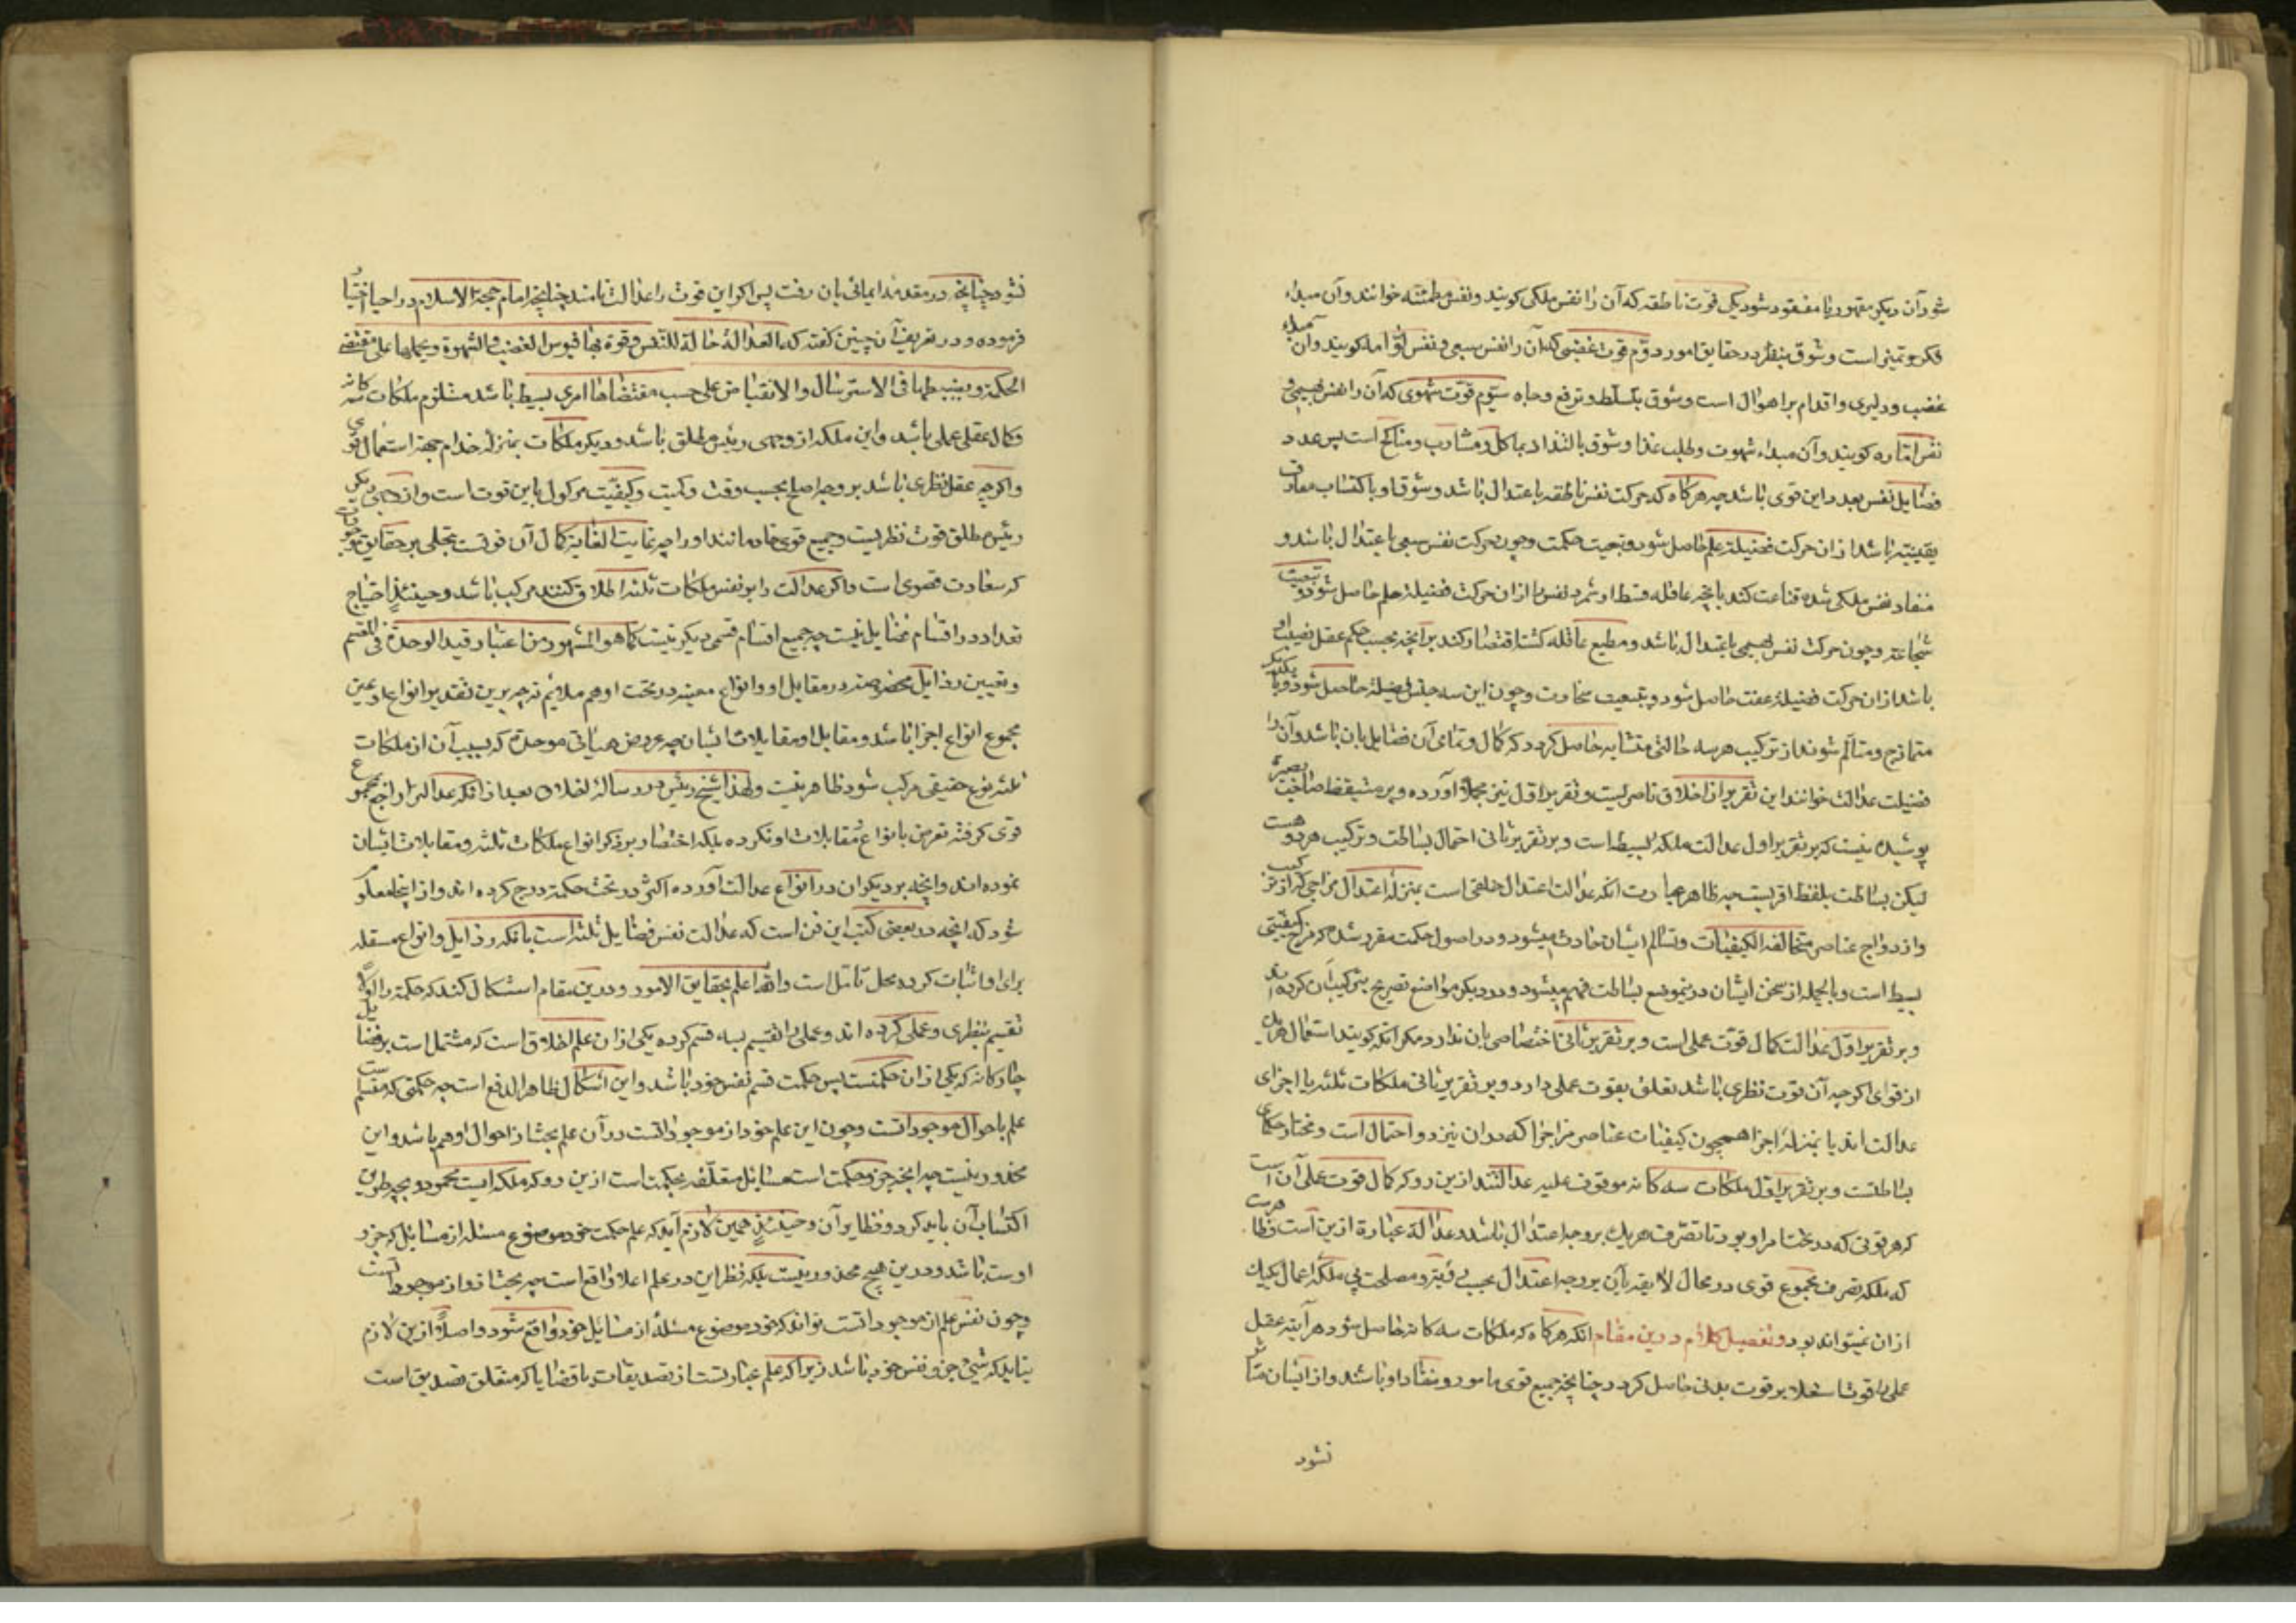 شود آن دیکر مقهور یا مفقود شود یکی قوت ناطقه که آن را نفس ملکی کویند و نفس مطمئنه خوانند و آن مبداء
فکر و تمیز است و شوق بنظر در حقایق امور دوّم قوت غضبی که آن را نفس سبعی و نفس لوّامه کویند و آن مبداء
غضب و دلیری و اقدام بر اهوال است و شوق بتسلط و ترفع و جاه سیّوم قوّت شهوی که آن را نفس بهیمی و
نفس امّاره کویند و آن مبداء شهوت و طلب غذا و شوق بالتذاد بماکل و مشارب و مناکح است پس عدد
فضایل نفس بعدد این قوی باشد چه هرکاه که حرکت نفس ناطقه باعتدال باشد و شوق او باکتساب معارف
یقینیّه باشد ازان حرکت فضیلة علم حاصل شود و بتبعیت حکمت و چون حرکت نفس سبعی باعتدال باشد و
منقاد نفس ملکی شده قناعت کند بانچه عاقله قسط او شمرد نفس را ازان حرکت فضیلة حلم حاصل شود و بتبعیت
شجاعة و چون حرکت نفس بهیمی باعتدال باشد و مطیع عاقله کشته اقتصار کند برآنچه بحسب حکم عقل نصیب او
باشد ازان حرکت فضیلة عفت حاصل شود و بتبعیت سخاوت و چون این سه جنس فضیلة حاصل شود و با یکدیکر
متمازج و متسالم شوند از ترکیب هرسه حالتی متشابه حاصل کردد که کمال و تمامی آن فضایل بان باشد و آن را
فضیلت عدالت خوانند این تقریر از اخلاق ناصریست و تقریر اول نیز مجملا آورده و بر متیقظ صاحب بصیرة
پوشیده نیست که بر تقریر اول عدالت ملکه بسیط است و بر تقریر ثانی احتمال بساطت و ترکیب هردو هست
لیکن بساطت بلفظ اقربست چه ظاهر عبارت آنکه عدالت اعتدال خلقی است بمنزله اعتدال مزاجی که از ترکیب
و ازدواج عناصر متخالفة الکیفیات و تسالم ایشان حادث میشود و در اصول حکمت مقرر شده که مزاج کیفیتی
بسیط است و بالجمله از سخن ایشان در ینموضع بساطت فهم میشود و در دیکر مواضع تصریح بترکیب آن کرده اند
و بر تقریر اوّل عدالت کمال قوّت عملی است و بر تقریر ثانی اختصاصی بان ندارد مکر آنکه کویند استعمال هریک
از قوای اکرچه آن قوّت نظری باشد تعلق بقوت عملی دارد و بر تقریر ثانی ملکات ثلثه یا اجزای
عدالت اند یا بمنزله اجزا همچون کیفیات عناصر مزاج را که دران نیز دو احتمال است و مختار حکمای
بساطتست و بر تقریر اوّل ملکات سه کانه موقوف علیه عدالتند ازین رو که کمال قوت عملی آن است
که هر قوتی که در تحت امر او بود تا تصرّف هریک بر وجه اعتدال باشد و عدالة عبارة ازین است و ظاهرست
که ملکه تصرف مجموع قوی در محال لایقه بآن بر وجه اعتدال بحسب و مصلحت بی ملکه اعمال یکیک
ازان نمیتواند بود و تفصیل کلام درین مقام آنکه هرکاه که ملکات سه کانه حاصل شود هرآینه عقل
عملی را قوت استعلا بر قوت بدنی حاصل کردد چنانچه جمیع قوی مامور و منقاد او باشند و از ایشان متاثر
نشود
نشود چنانچه در مقدمه ایمائی بان رفت پس اکر این قوت را عدالت نامند چنانچه امام حجة الاسلام در احیا اختیار
فرموده و در تعریف آن چنین کفته که العدالة حالة للنفس و قوة بها تسوس الغضب و الشهوة و یحملها علی مقتضی
الحکمة و یضبطها فی الاسترسال و الانقباض علی حسب مقتضاها امری بسیط باشد مستلزم ملکات سه کانه
و کمال عقلی عملی باشد و این ملکه از وجهی رئیس مطلق باشد و دیکر ملکات بمنزله خدام جهة استعمال قوی
و اکرچه عقل نظری باشد بر وجه اصلح بحسب وقت و کمیت و کیفیّت موکول باین قوت است و از وجهی دیکر
رئیس مطلق قوت نظریست و جمیع قوی خادمانند او را چه غایت الغایة کمال آن قوتست تجلی بر حقایق موجودات
که سعادت قصوی است و اکر عدالت را بر نفس ملکات ثلثه اطلاق کنند مرکب باشد و حینئذ احتیاج
تعداد در اقسام فضایل نیست چه جمیع اقسام قسمی دیکر نیست کما هو المشهور من اعتبار قید الوحدة فی المقسم
و تعیین رذایل مخصوصه در مقابل او و انواع معینه در تحت او هم ملائم نه چه برین تقدیر انواع او عین
مجموع انواع اجزا باشد و مقابل او مقابلات ایشان چه عروض هیأتی موحدة که بسبب آن از ملکات
ثلثه نوع حقیقی مرکب شود ظاهر نیست و لهذا شیخ رئیس در رسالة اخلاق بعد از آنکه عدالت را راجع بمجموع
قوی کرفته تعرض بانواع و مقابلات او نکرده بلکه اختصار بر ذکر انواع ملکات ثلثه و مقابلات ایشان
نموده اند و آنچه بر دیکران در انواع عدالت آورده اکثر در تحت حکمة درج کرده اند و از اینجا معلوم
شود که آنچه در بعضی کتب این فن است که عدالت نفس فضایل ثلثه است با آنکه رذایل و انواع مستقله
برای او اثبات کرده محل تامل است والله اعلم بحقایق الامور و درین مقام استشکال کنند که حکمة را اوّلا
تقسیم بنظری و عملی کرده اند و عملی را تقسیم بسه قسم کرده یکی ازان علم اخلاق است که مشتمل است بر فضایل
چارکانه که یکی ازان حکمتست پس حکمت قسم نفس خود باشد و این اشکال ظاهر الدفع است چه حکمتی که مقسم است
علم باحوال موجوداتست و چون این علم خود از موجوداتست در آن علم بحث از احوال او هم باشد و این
محذور نیست چه آنچه جزو حکمت است مسایل متعلّقه بحکمت است ازین رو که ملکه ایست محمود و بچه طریق
اکتساب آن باید کرد و نظایر آن و حینئذ همین لازم آید که علم حکمت خود موضوع مسئله از مسایل که جزو
اوست باشد و درین هیچ محذور نیست بلکه نظر این در علم اعلا واقع است چه بحث ازو از موجوداتست
و چون نفس علم از موجوداتست تواند که خود موضوع مسئله از مسایل خود واقع شود و اصلاً ازین لازم
نیاید که شیئی جزو نفس خود باشد زیرا که علم عبارتست از تصدیقات یا قضایا که متعلق تصدیق است